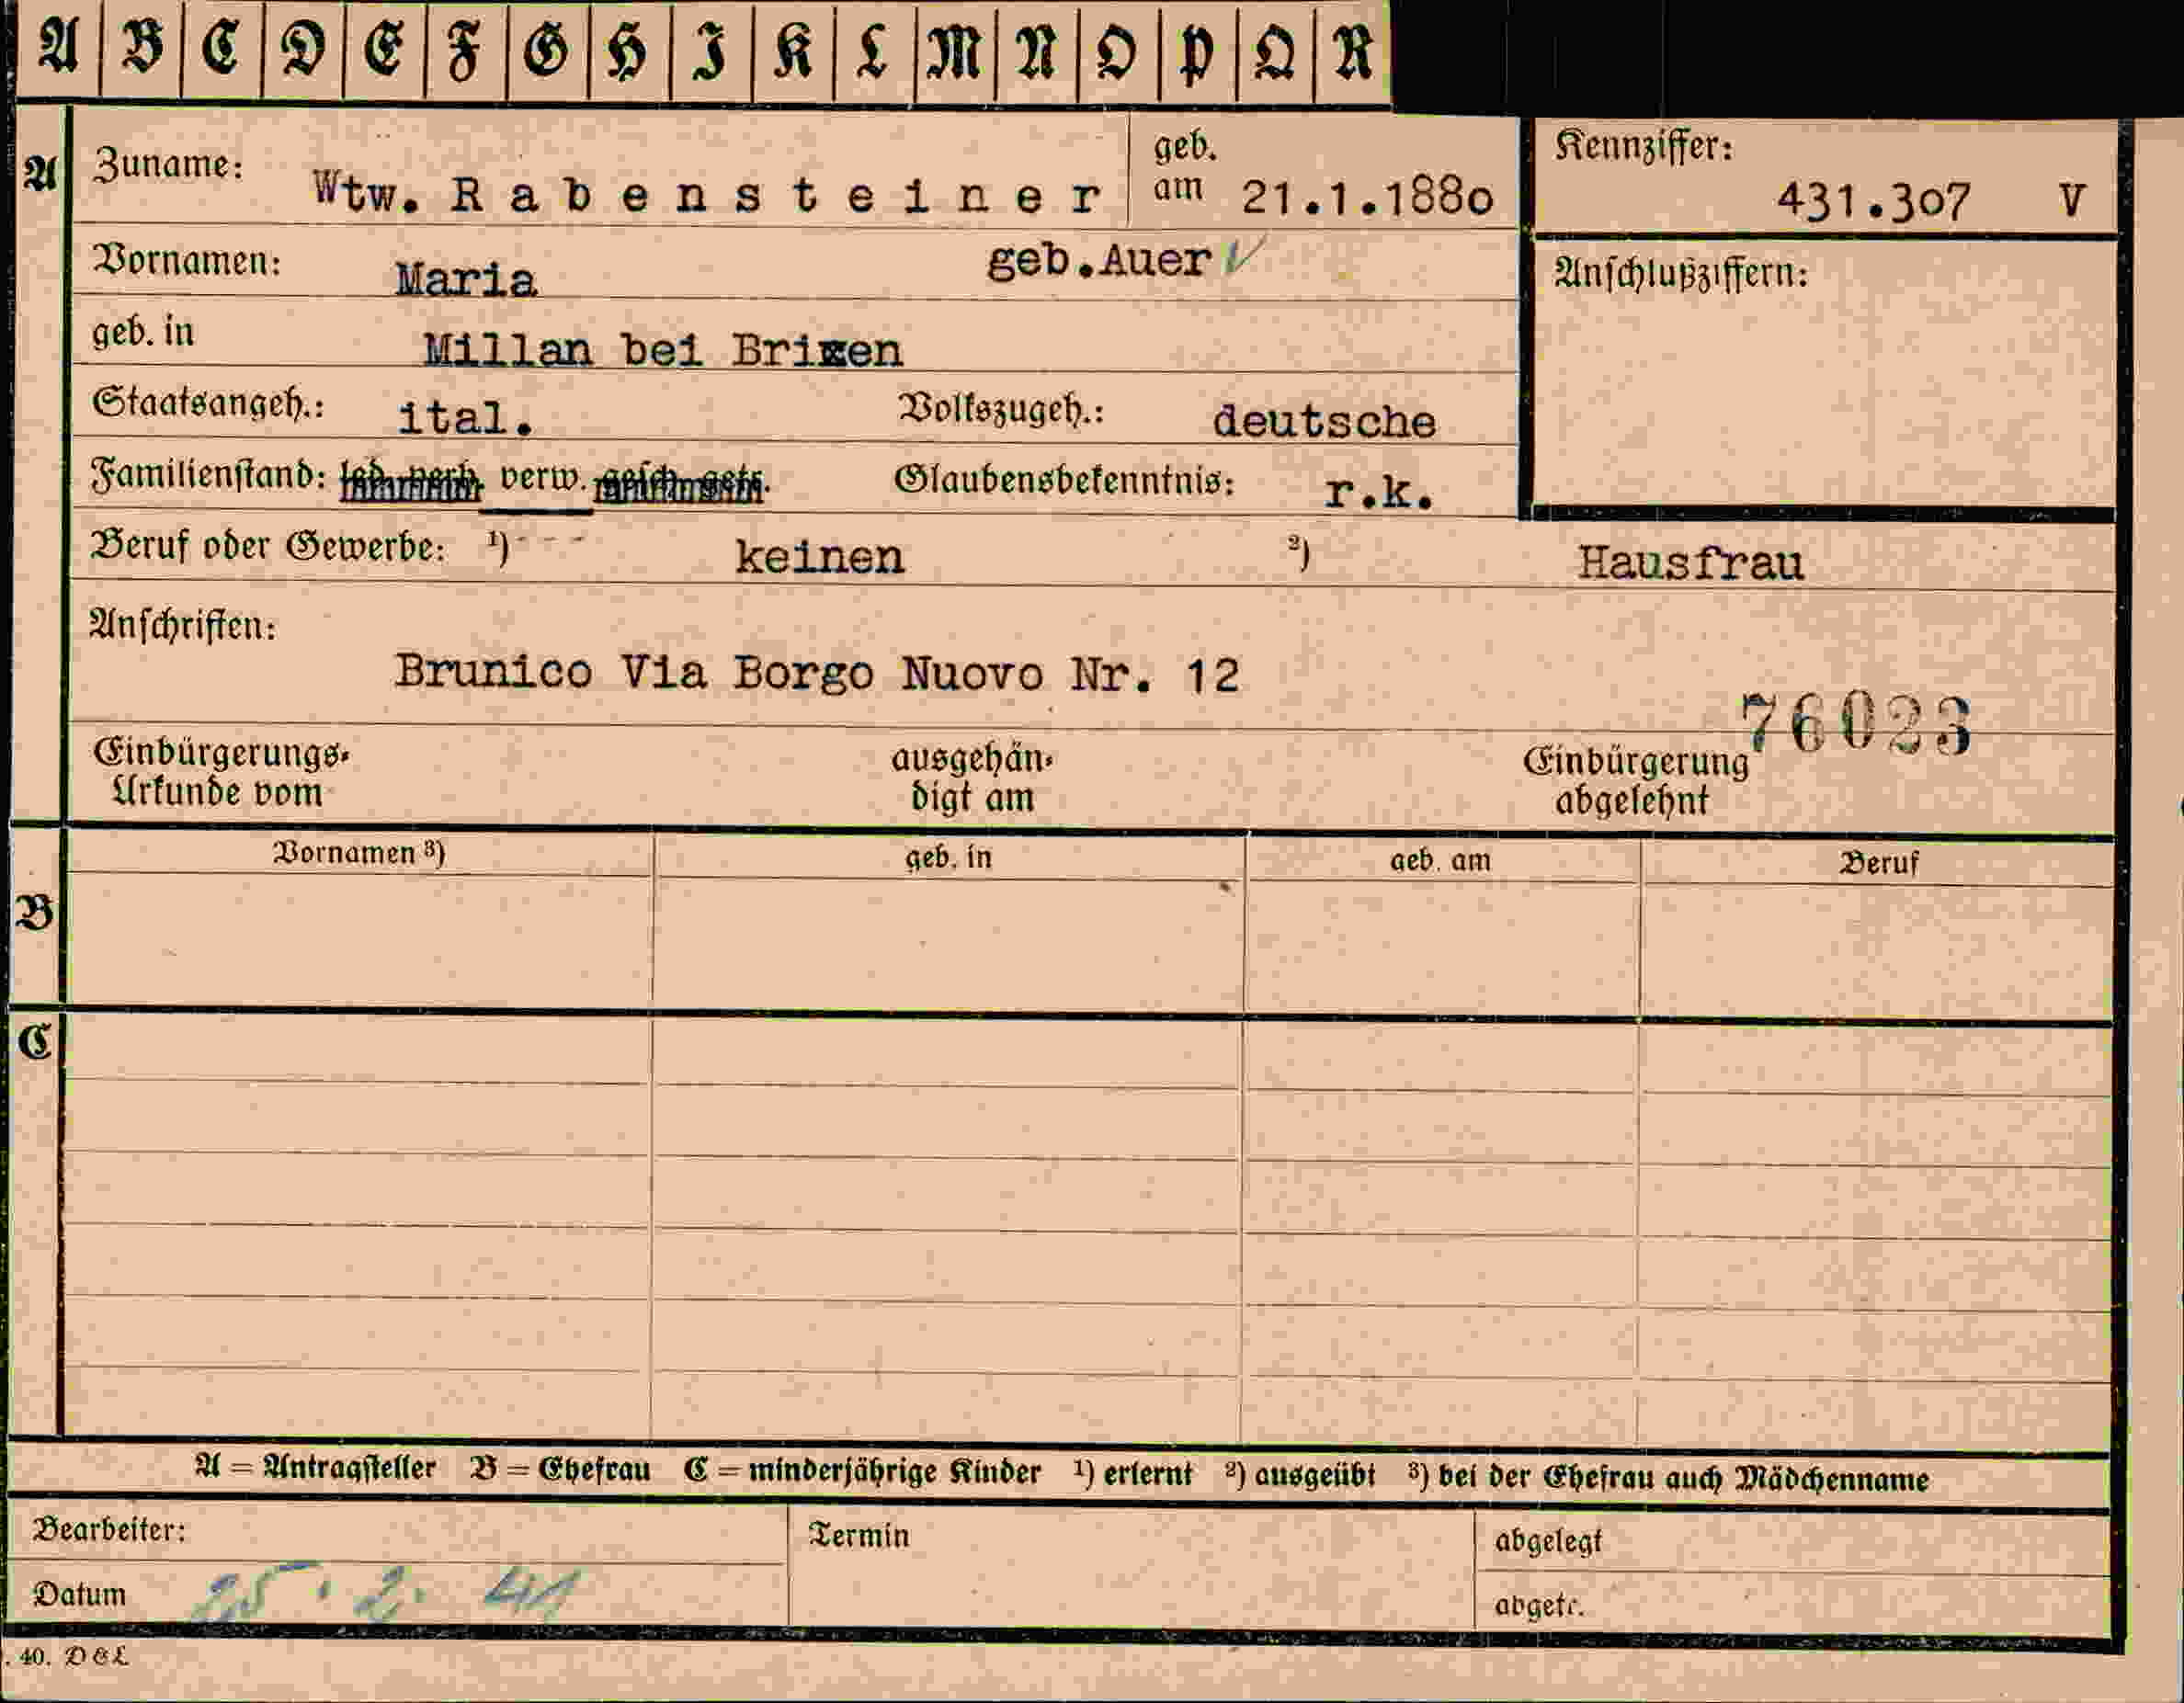 A B C D E F G H I K L M N O P Q R
A Zuname: Wtw. Rabensteiner geb. am 21.1.1880 Kennziffer: 431.307 V
Vornamen: Maria geb.Auer Anschlußziffern:
geb. in Millan bei Brixen
Staatsangeh.: ital. Volkszugeh.: deutsche
Familienstand: verw. Glaubensbekenntnis: r.k.
Beruf oder Gewerbe: ¹) - - - keinen ²) Hausfrau
Anschriften:
Brunico Via Borgo Nuovo Nr. 12
76023
Einbürgerungs- ausgehän- Einbürgerung
Urkunde vom digt am abgelehnt
Vornamen ³) geb. in geb. am Beruf
B
C
A = Antragsteller B = Ehefrau C = minderjährige Kinder ¹) erlernt ²) ausgeübt ³) bei der Ehefrau auch Mädchenname
Bearbeiter: Termin abgelegt
Datum 25. 2. 41 abgetr.
. 40. D&L